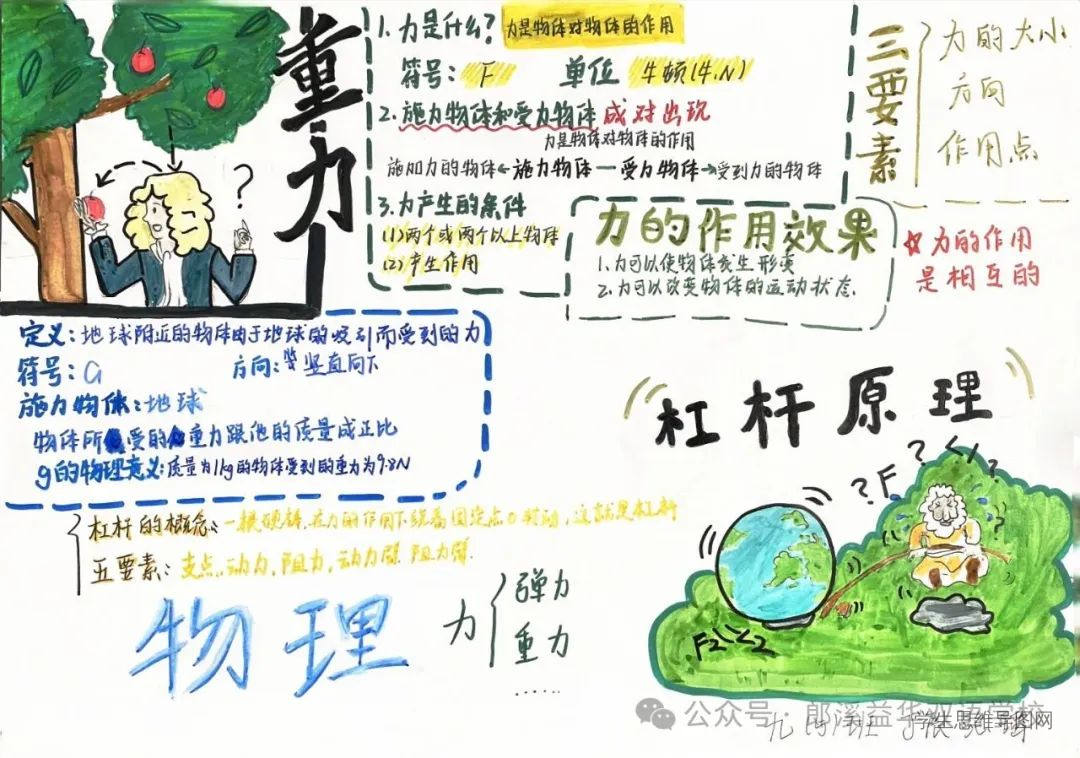 重力
?
1.力是什么? 力是物体对物体的作用
符号: F 单位 牛顿(牛.N)
2.施力物体和受力物体 成对出现
力是物体对物体的作用
施加力的物体←施力物体—受力物体→受到力的物体
3.力产生的条件
(1)两个或两个以上物体
(2)产生作用
三要素
力的大小
方向
作用点
力的作用效果
1.力可以使物体发生形变
2.力可以改变物体的运动状态.
☆力的作用
是相互的
定义:地球附近的物体由于地球的吸引而受到的力
符号:G 方向: 竖直向下
施力物体:地球
物体所受的重力跟他的质量成正比
g的物理意义:质量为1kg的物体受到的重力为9.8N
杠杆原理
? F ? <1 ?
?
F2 <2
杠杆的概念:一根硬棒.在力的作用下绕着固定点o转动,这就是杠杆
五要素:支点,动力,阻力,动力臂.阻力臂.
物理
力
弹力
重力
……
公众号·郎溪益华双语学校
学生思维导图网
九